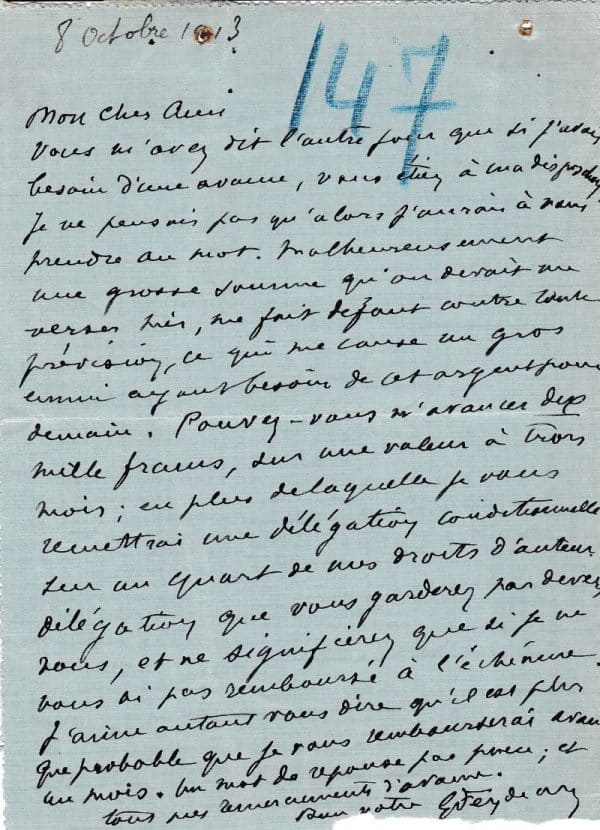 8 Octobre 1913
147
Mon cher Ami
Vous m'avez dit l'autre jour que si j'avais
besoin d'une avance, vous étiez à ma disposition
Je ne pensais pas qu'alors j'aurais à vous
prendre au mot. Malheureusement
une grosse somme qu'on devait me
verser hier, me fait défaut contre toute
prévision, ce qui me cause un gros
ennui ayant besoin de cet argent pour
demain. Pouvez-vous m'avancer dix
mille francs, sur une valeur à trois
mois; en plus de laquelle je vous
remettrai une délégation conditionnelle
sur un quart de mes droits d'auteur
délégation que vous garderez par devers
vous, et ne signifierez que si je ne
vous ai pas remboursé à l'échéance.
J'aime autant vous dire qu'il est plus
que probable que je vous rembourserai avant
un mois. Un mot de réponse par pneu; et
tous mes remerciements d'avance.
Bien votre